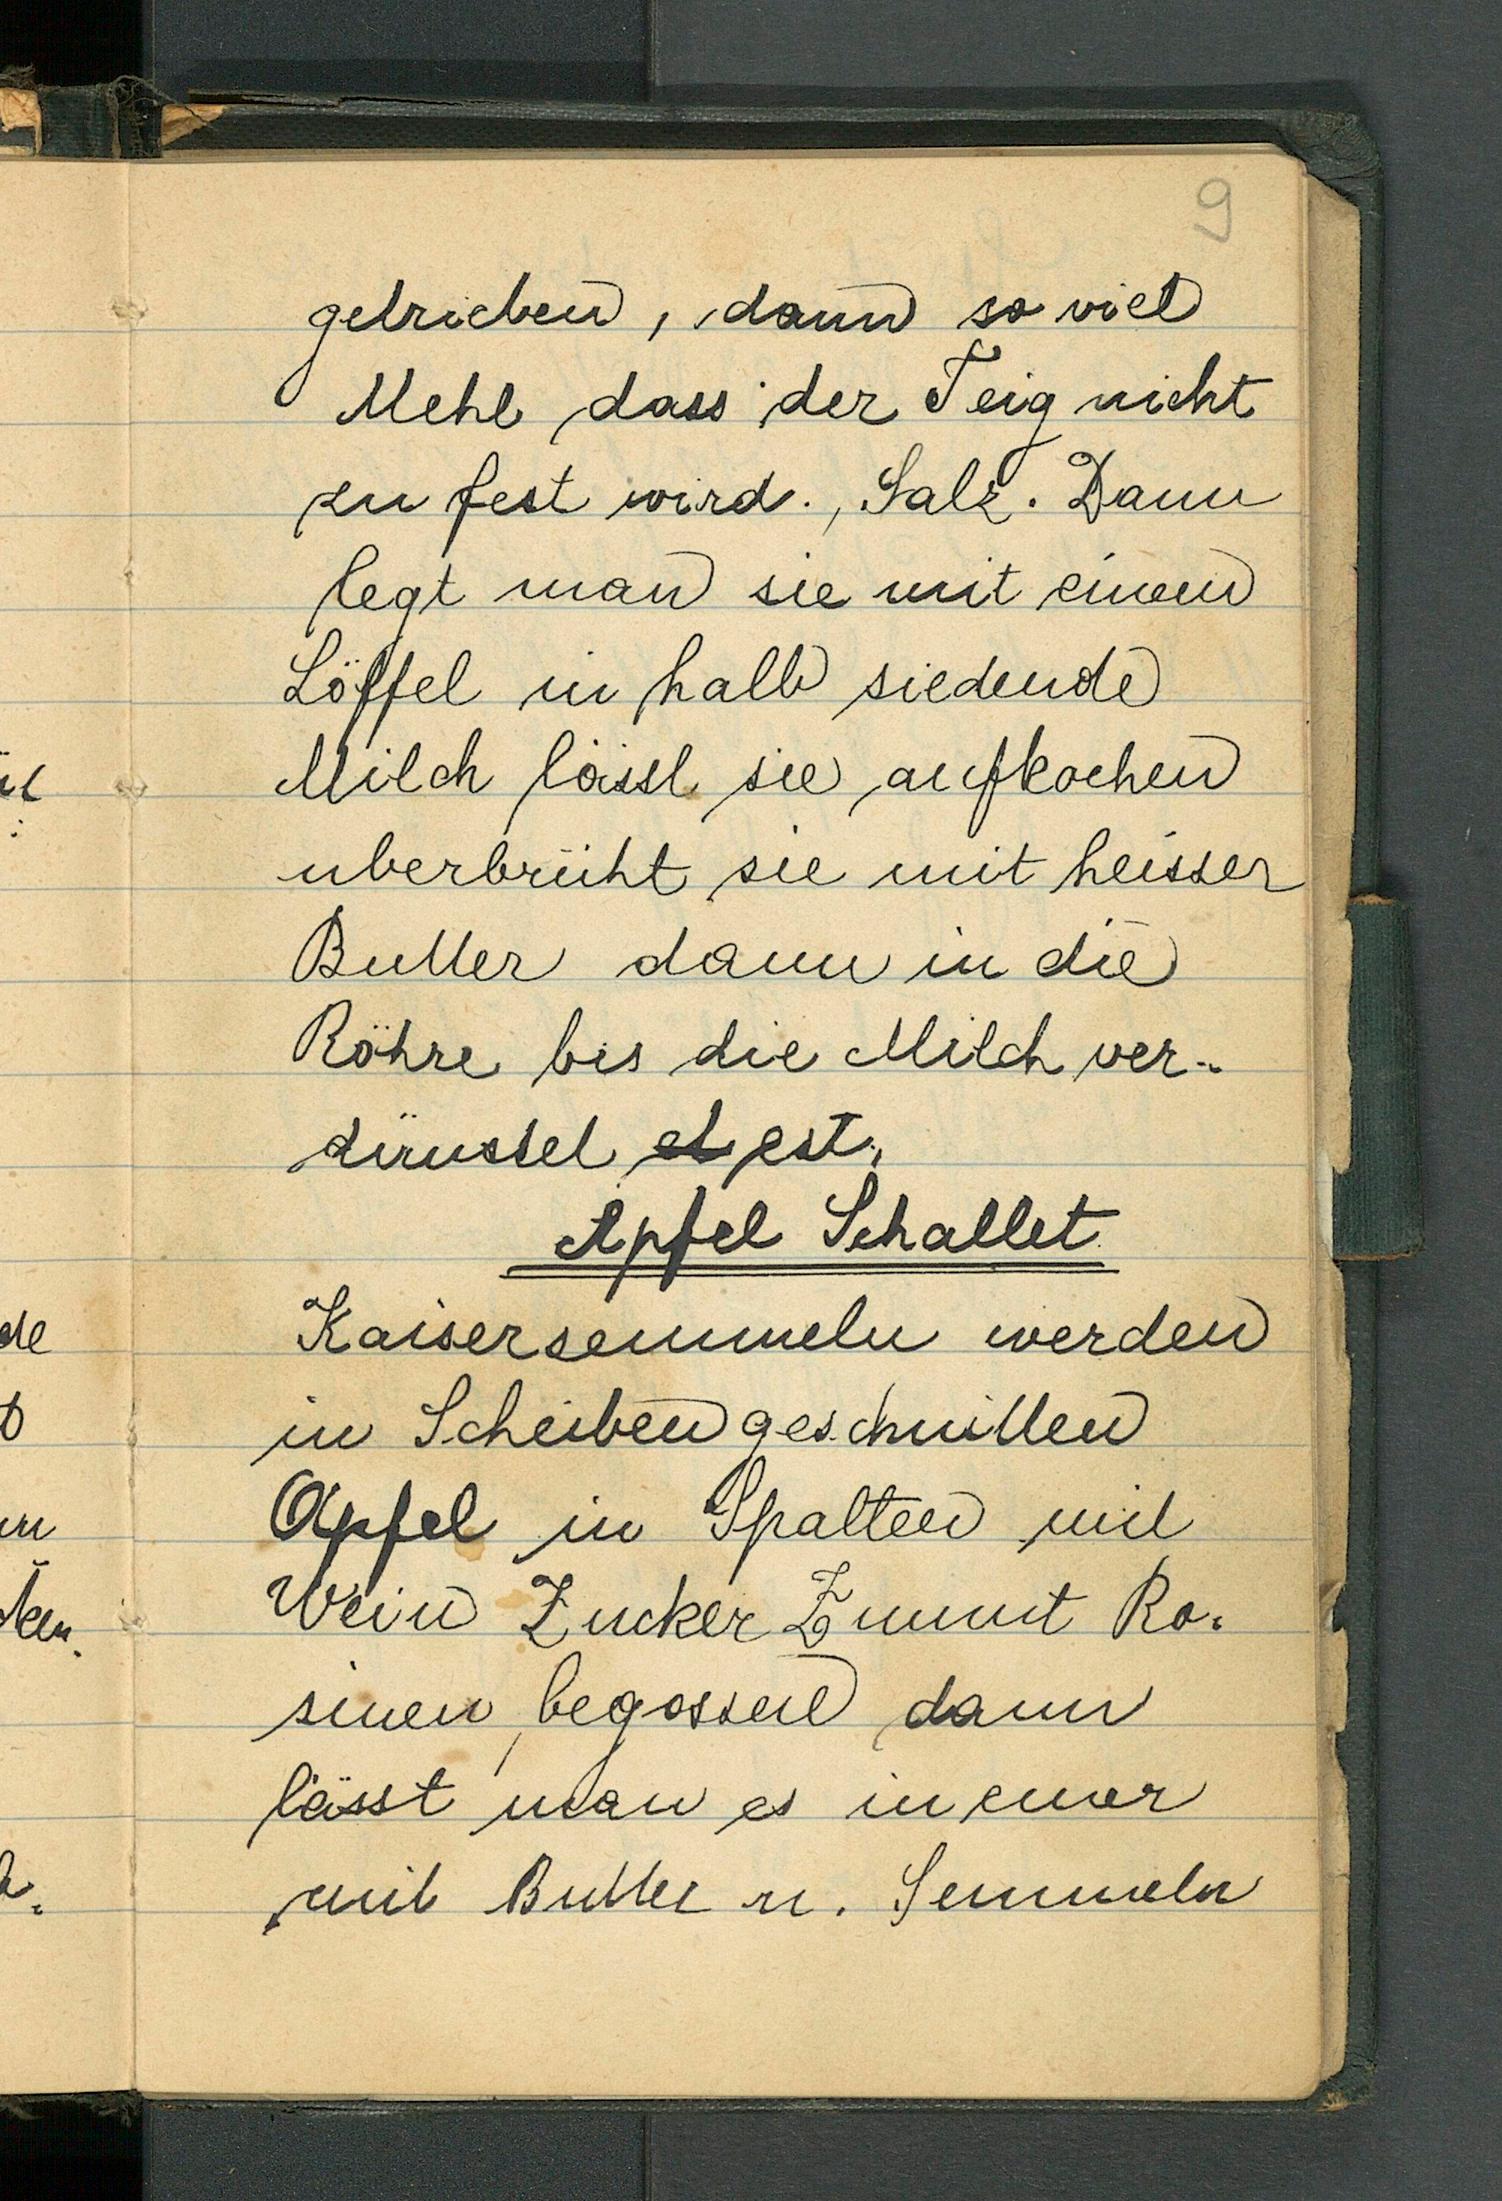 9
getrieben, dann so viel
Mehl dass der Teig nicht
zu fest wird., Salz. Dann
legt man sie mit einem
Löffel in halb siedende
Milch lässt sie aufkochen
uberbrüht sie mit heisser
Butter dann in die
Röhre bis die Milch ver-
dünstet et est.
Apfel Schallet
Kaisersemmeln werden
in Scheiben geschnitten
Apfel in Spalten mit
Wein Zucker Zimmt Ro-
sinen begossen dann
lässt man es in einer
mit Butter u. Semmeln